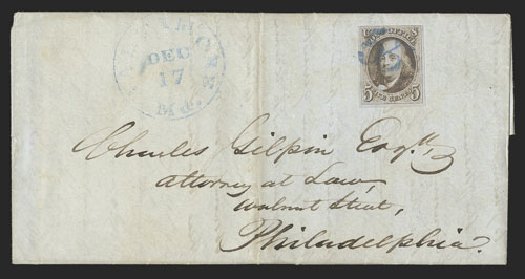 BALTIMORE
DEC
17
Md.
POST OFFICE
FIVE CENTS
5 5
Charles Gilpin Esqr
attorney at Law,
walnut Street,
Philadelphia.